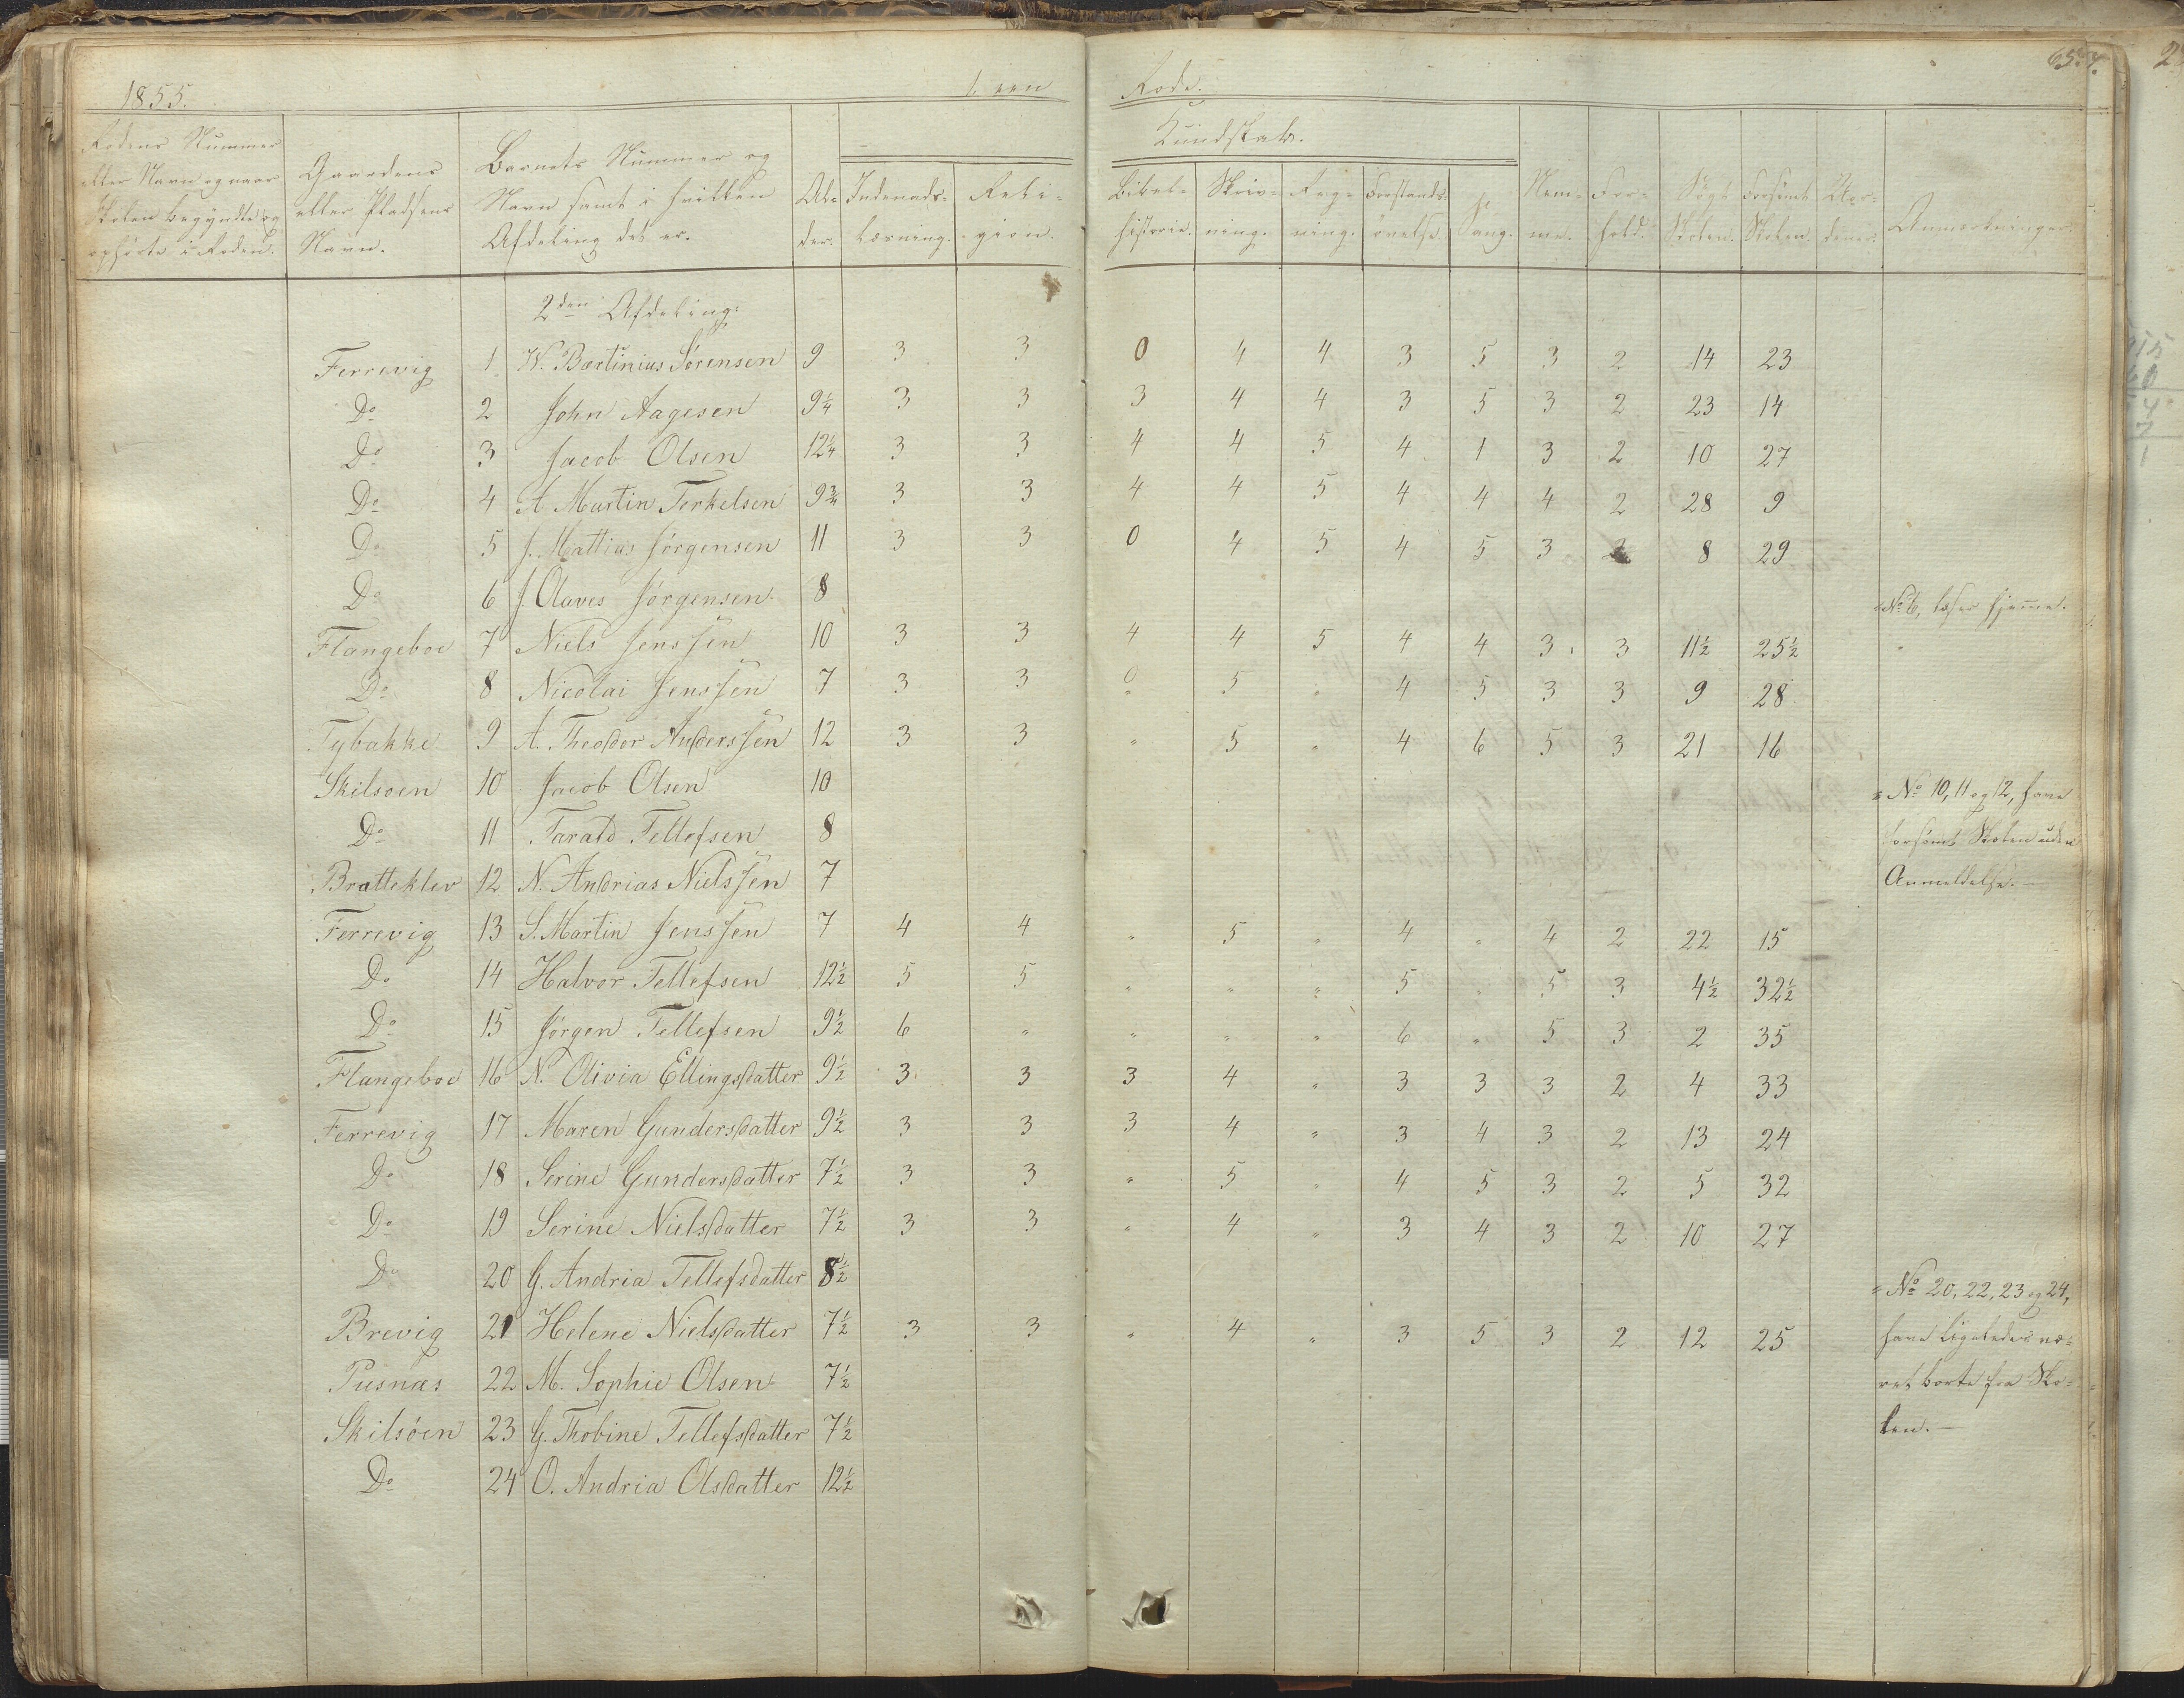 1855. 1. ren Rode. 65.
Rodens Nummer eller Navn og naar Skolen begyndte og ophørte i Roden. | Gaardens eller Pladsens Navn. | Barnets Nummer og Navn samt i hvilken Afdeling det er. | Al-der. | Indenads-læsning. | Reli-gion. | Kundskab. | Bibel-historie. | Skriv-ning. | Reg-ning. | Forstands-øvelse. | Sang. | Nem-me. | For-hold. | Søgt Skolen. | Forsømt Skolen. | Anmærkninger.
2den Afdeling:
Ferrevig 1 W. Bærtinius Sørensen 9 3 3 0 4 4 3 5 3 2 14 23
Do 2 John Aagesen 9¼ 3 3 3 4 4 3 5 3 2 23 14
Do 3 Jacob Olsen 12¼ 3 3 4 4 5 4 1 3 2 10 27
Do 4 A Martin Terkelsen 9¾ 3 3 4 4 5 4 4 4 2 28 9
Do 5 J. Mattias Jørgensen 11 3 3 0 4 5 4 5 3 2 8 29
Do 6 J. Olaves Jørgensen 8 No 6, læser hjemme.
Flangeboe 7 Niels Jenssen 10 3 3 4 4 5 4 4 3 3 11½ 25½
Do 8 Nicolai Jenssen 7 3 3 0 5 " 4 5 3 3 9 28
Tybakke 9 A. Theodor Anderssen 12 3 3 " 5 " 4 6 5 3 21 16
Skilsoen 10 Jacob Olsen 10 " No 10, 11 og 12, have
Do 11 Tarald Tellefsen 8 forsømt Skolen uden
Bratteklev 12 N. Andrias Nielssen 7 Anmeldelse. —
Ferrevig 13 S. Martin Jenssen 7 4 4 " 5 " 4 " 4 2 22 15
Do 14 Halvor Tellefsen 12½ 5 5 " " " 5 " 5 3 4½ 32½
Do 15 Jørgen Tellefsen 9½ 6 " " " " 6 " 5 3 2 35
Flangeboe 16 N. Olivia Ellingsdatter 9½ 3 3 3 4 " 3 3 3 2 4 33
Ferrevig 17 Maren Gundersdatter 9½ 3 3 3 4 " 3 4 3 2 13 24
Do 18 Serine Gundersdatter 7½ 3 3 " 5 " 4 5 3 2 5 32
Do 19 Serine Nielsdatter 7½ 3 3 " 4 " 3 4 3 2 10 27
Do 20 G. Andria Tellefsdatter 8½ " No 20, 22, 23 og 24,
Brevig 21 Helene Nielsdatter 7½ 3 3 " 4 " 3 5 3 2 12 25 have ligeledes væ-
Pusnæs 22 M. Sophie Olsen 7½ ret borte fra Sko-
Skilsöen 23 G. Thobine Tellefsdatter 7½ len. —
Do 24 O. Andria Olsdatter 12½